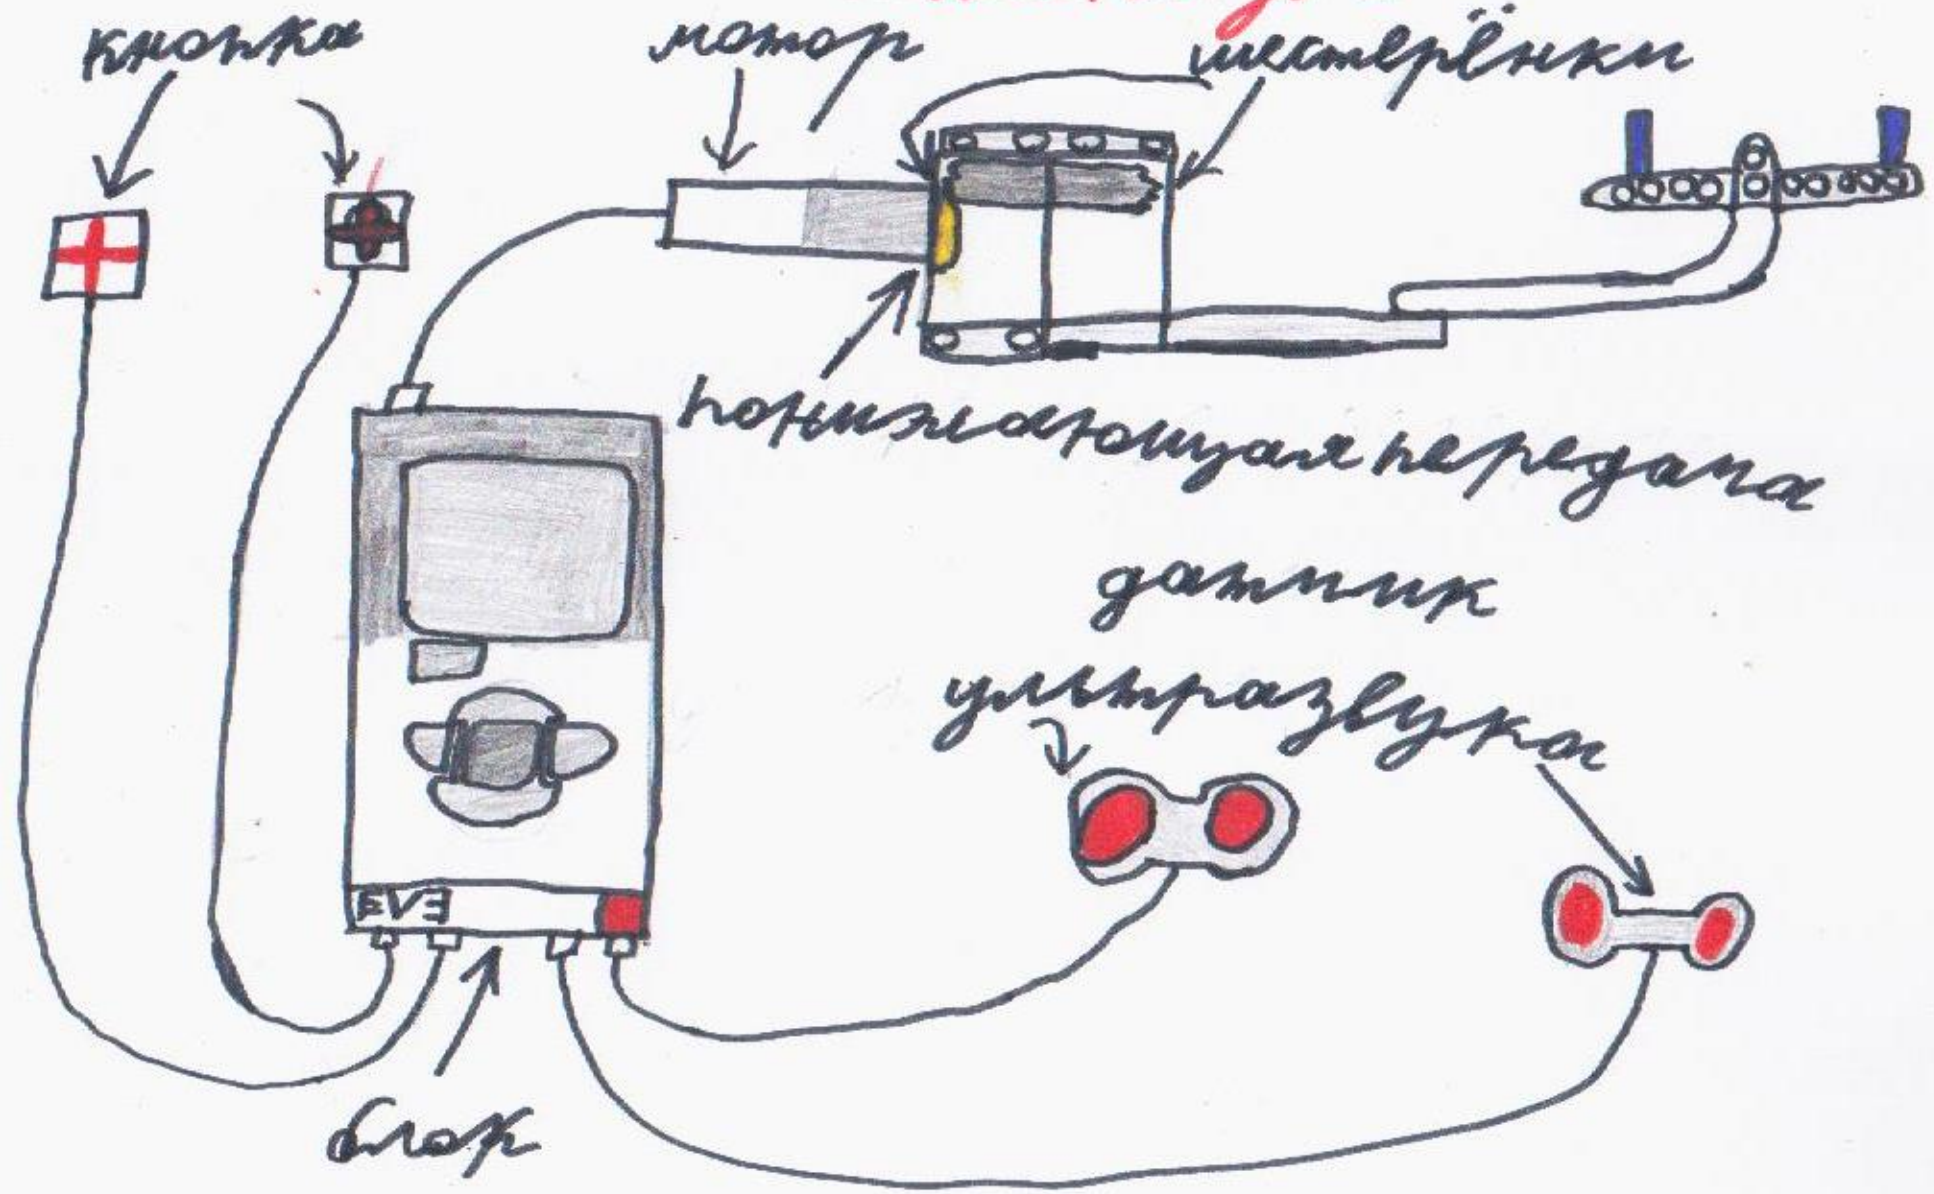 кнопка
мотор
шестерёнки
понижающая передача
датчик
ультразвука
EV3
блок